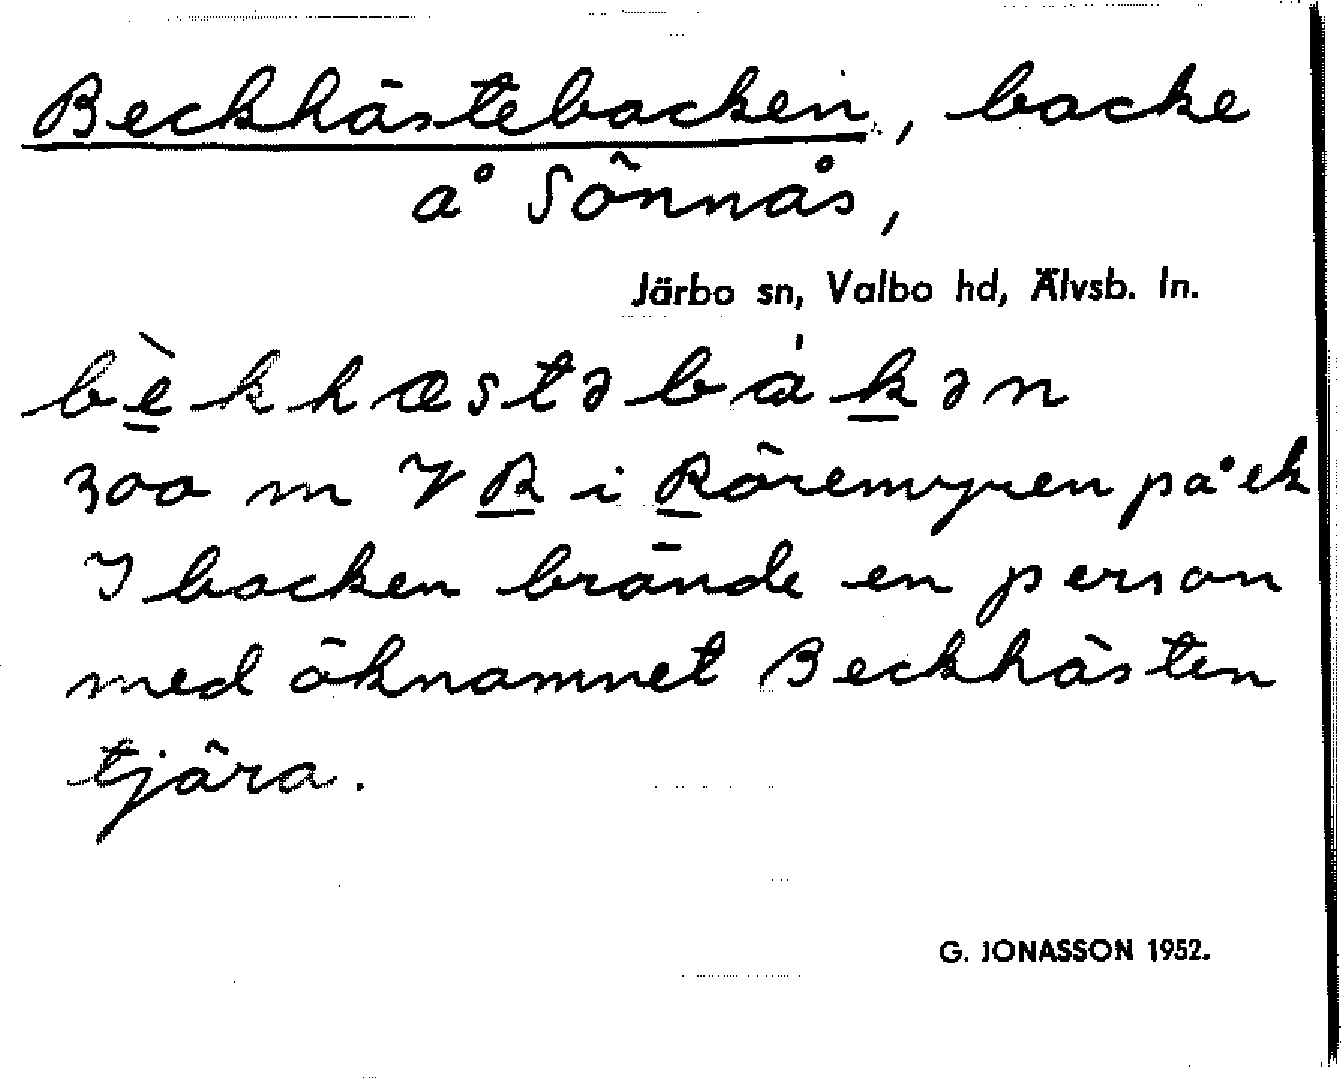 Beckhästebacken, backe
å Sönnås,
Järbo sn, Valbo hd, Älvsb. ln.
bèkhæstəbákən
300 m V R i Röremyren på ek
I backen brände en person
med öknamnet Beckhästen
tjära.
G. JONASSON 1952.